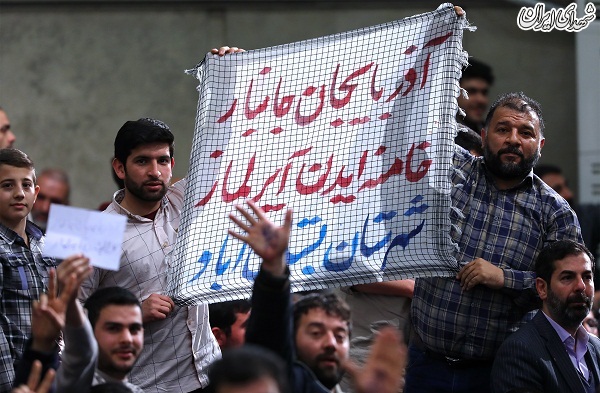 شهدای ایران
آذربایجان جانباز
خامنه ایدن آیرلماز
شهرستان بستان آباد